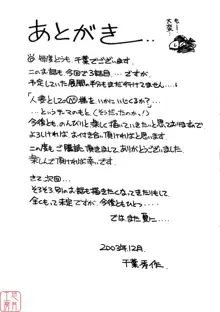 あとがき..
も〜
大変!
毎度どうも千葉でございます。
このお話も今回で3話目……ですが、
予定していた展開の半分もまだ行けてません……
「人妻としての 様をいかにいじくるか?」…
…というテーマのもと(そうだったのか!)
今後ものんびりと楽しく描いていきたいと思っておりますので
よろしければお付き合い頂ければと思います
この度もご購読頂きましてありがとうございました
楽しんで頂ければ幸いです。
さて、次回…
そろそろ別のお話も描きたくなってきたりもして
全くもって未定ですが、今後ともひとつ‥‥
ではまた夏に……
2003年12月.
千葉秀作